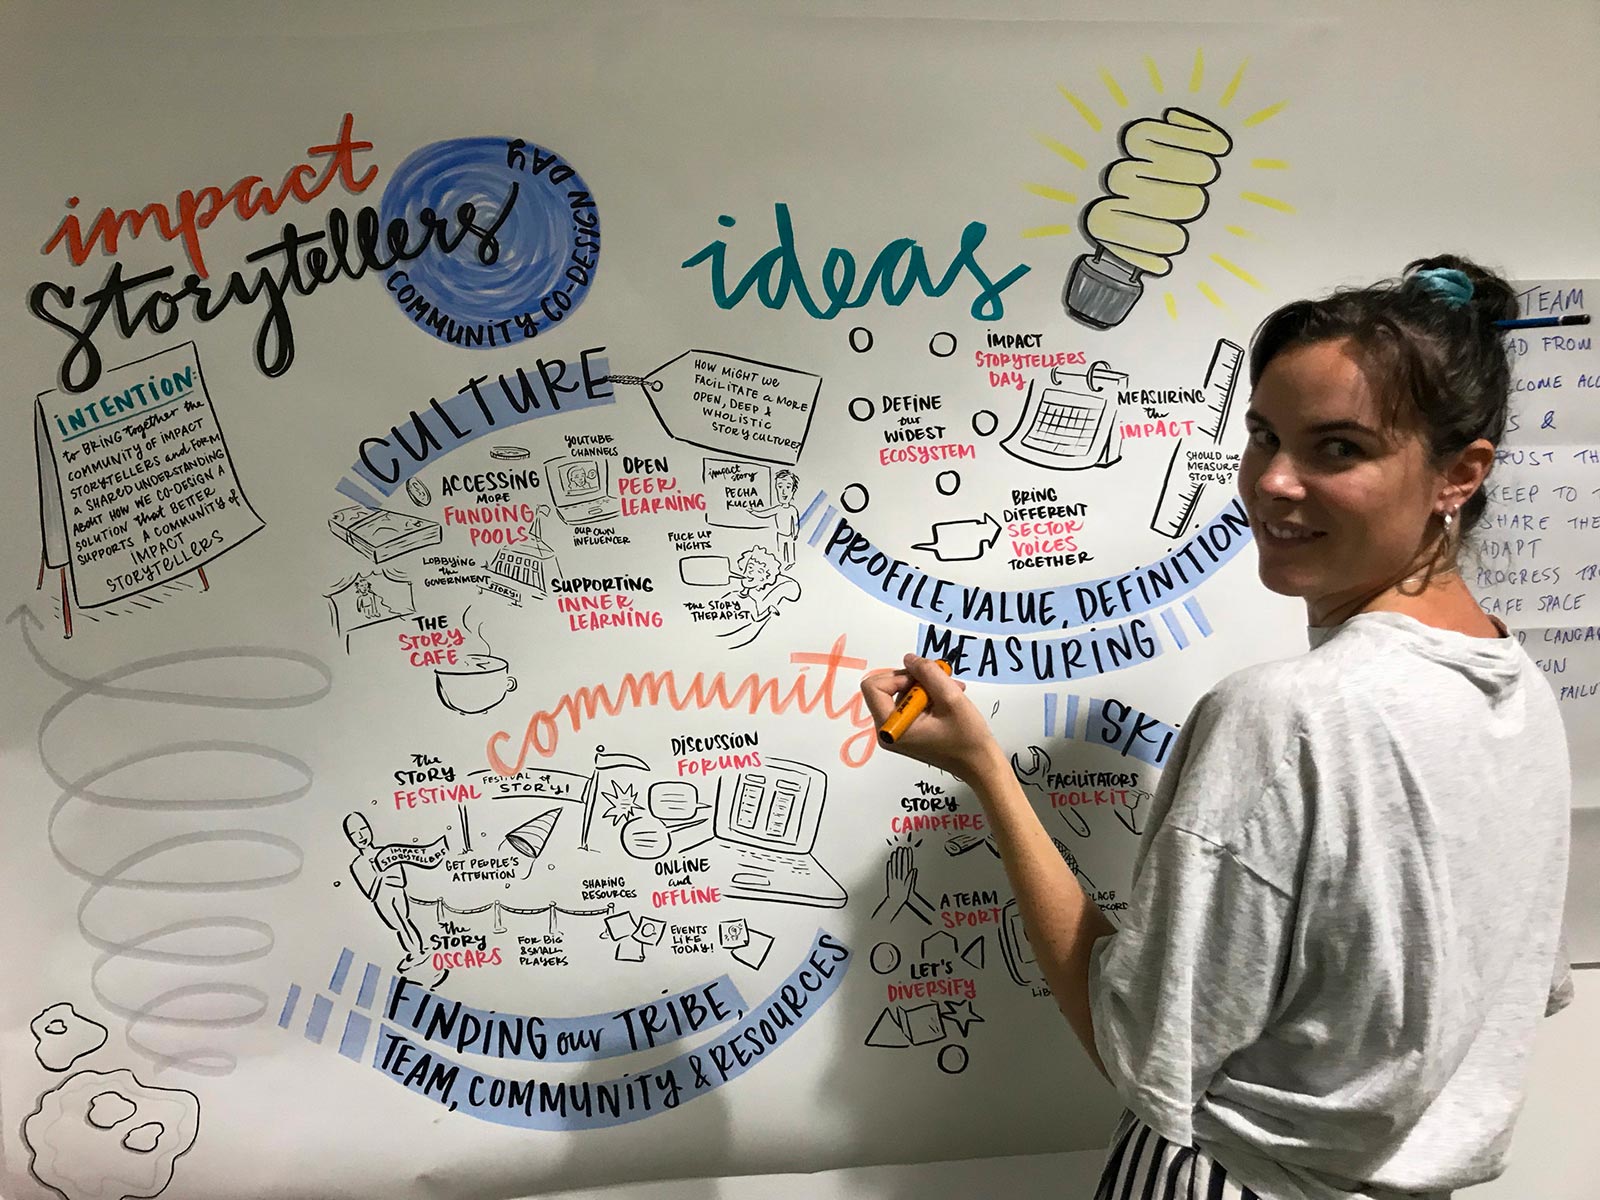 impact
Storytellers
COMMUNITY CO-DESIGN DAY
INTENTION:
to BRING together the
COMMUNITY OF IMPACT
STORYTELLERS and FORM
A SHARED UNDERSTANDING
ABOUT HOW WE CO-DESIGN A
SOLUTION that BETTER
SUPPORTS A COMMUNITY of
IMPACT
STORYTELLERS
ideas
CULTURE
HOW MIGHT WE
FACILITATE a MORE
OPEN, DEEP &
WHOLISTIC
STORY CULTURE?
ACCESSING
MORE
FUNDING
POOLS
YOUTUBE
CHANNELS
OUR OWN
INFLUENCER
OPEN
PEER
LEARNING
impact
story
PECHA
KUCHA
FUCK UP
NIGHTS
LOBBYING
the
GOVERNMENT
STORY!
SUPPORTING
INNER
LEARNING
the STORY
THERAPIST
THE
STORY
CAFE
IMPACT
STORYTELLERS
DAY
DEFINE
our
WIDEST
ECOSYSTEM
MEASURING
the
IMPACT
SHOULD we
MEASURE
STORY?
BRING
DIFFERENT
SECTOR
VOICES
TOGETHER
PROFILE, VALUE, DEFINITION
MEASURING
community
the
STORY
FESTIVAL
FESTIVAL of
STORY!
DISCUSSION
FORUMS
IMPACT
STORYTELLERS
GET PEOPLE'S
ATTENTION
SHARING
RESOURCES
ONLINE
and
OFFLINE
the
STORY
OSCARS
FOR BIG
& SMALL
PLAYERS
EVENTS
LIKE
TODAY!
FINDING our TRIBE,
TEAM, COMMUNITY & RESOURCES
SKI
the
STORY
CAMPFIRE
FACILITATORS
TOOLKIT
A TEAM
SPORT
LET'S
DIVERSIFY
TEAM
FROM
ALL
&
KEEP TO
SHARE THE
ADAPT
PROGRESS
SAFE SPACE